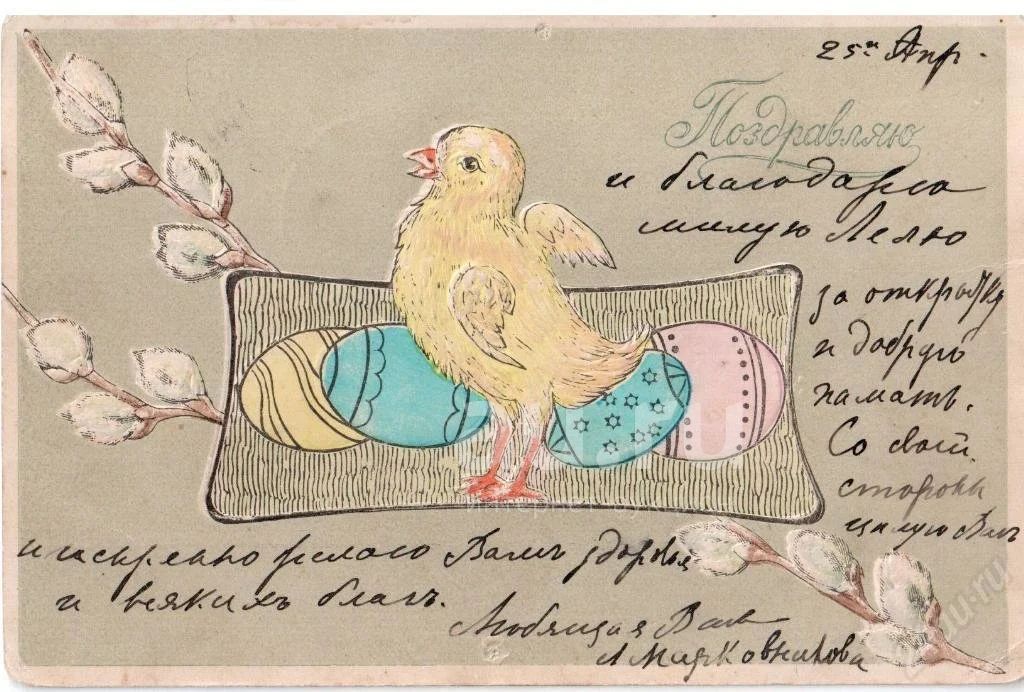 25го Апр.
Поздравляю
и благодарю
милую Лелю
за открытку
и добрую
память.
Со своей
стороны
целую Вас
и искренно желаю Вамъ здоровья
и всякихъ благъ.
Любящая Васъ